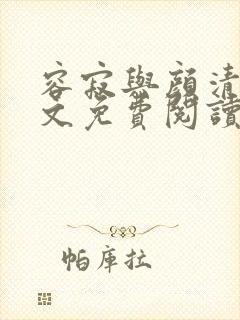 容寂與顏清
文免費閱讀
帕庫拉